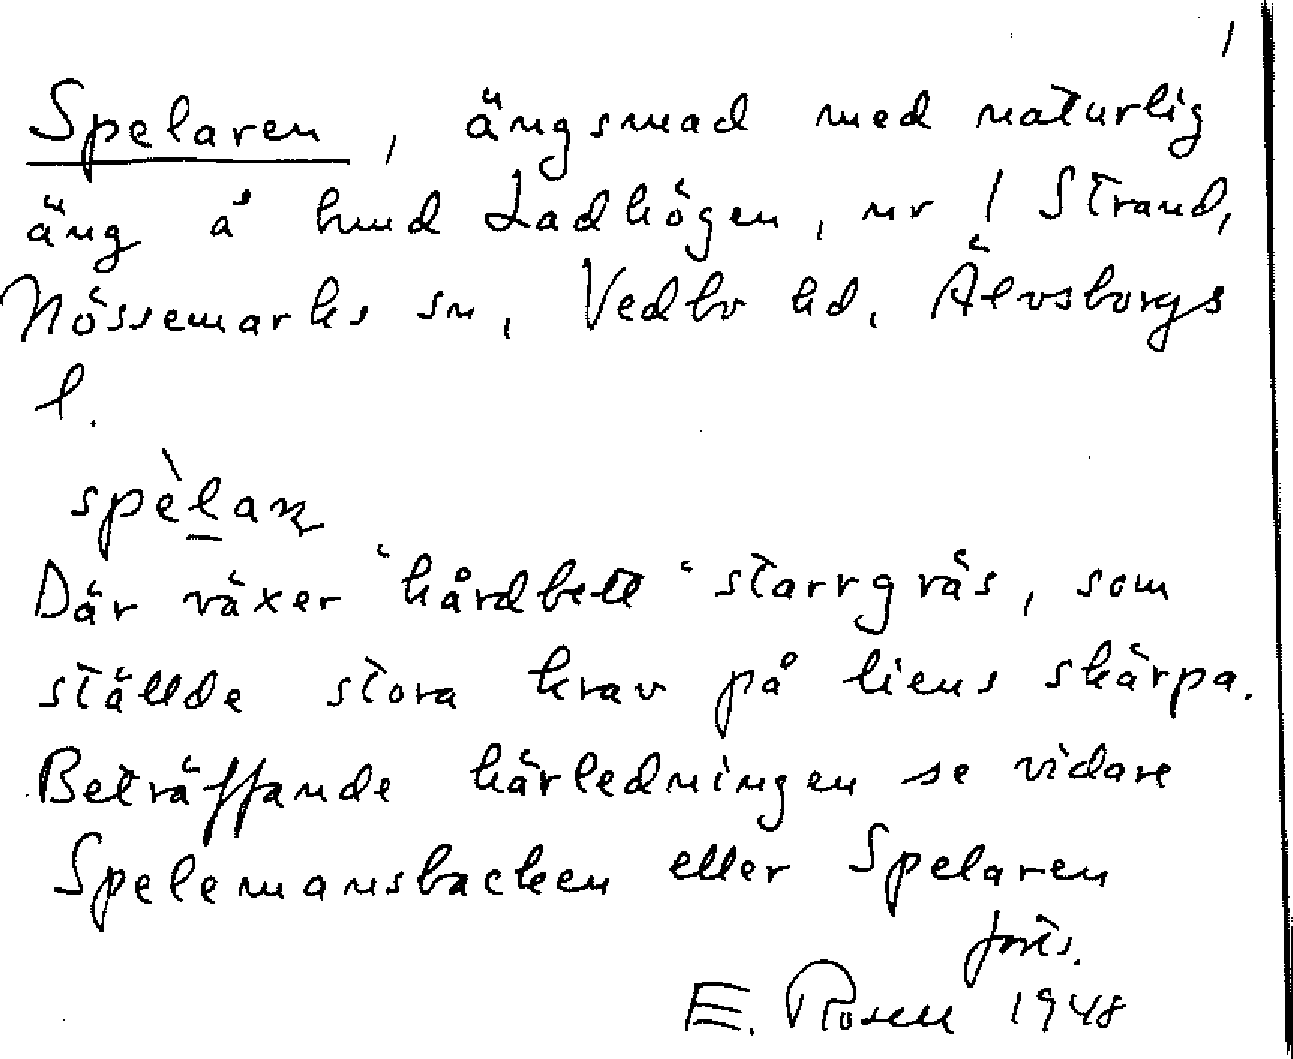 1
Spelaren, ängsmad med naturlig
äng å hmd Ladhögen, nr 1 Strand,
Nössemarks sn, Vedbo hd, Älvsborgs
l.
spèlaɳ
Där växer "hårdbett" starrgräs, som
ställde stora krav på liens skärpa.
Beträffande härledningen se vidare
Spelemansbacken eller Spelaren
forts.
E. Rosell 1948